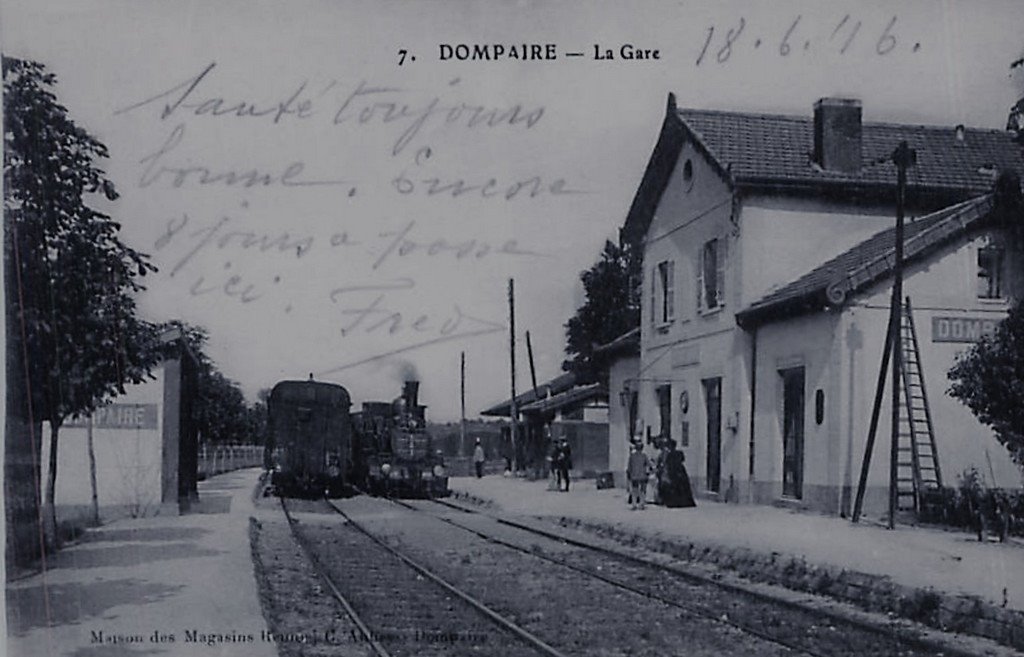 7. DOMPAIRE — La Gare
18.6.16.
Santé toujours
bonne. Encore
8 jours a passe
ici. Fred
DOMPAIRE
DOMP
Maison des Magasins Réunis, C. Dompaire